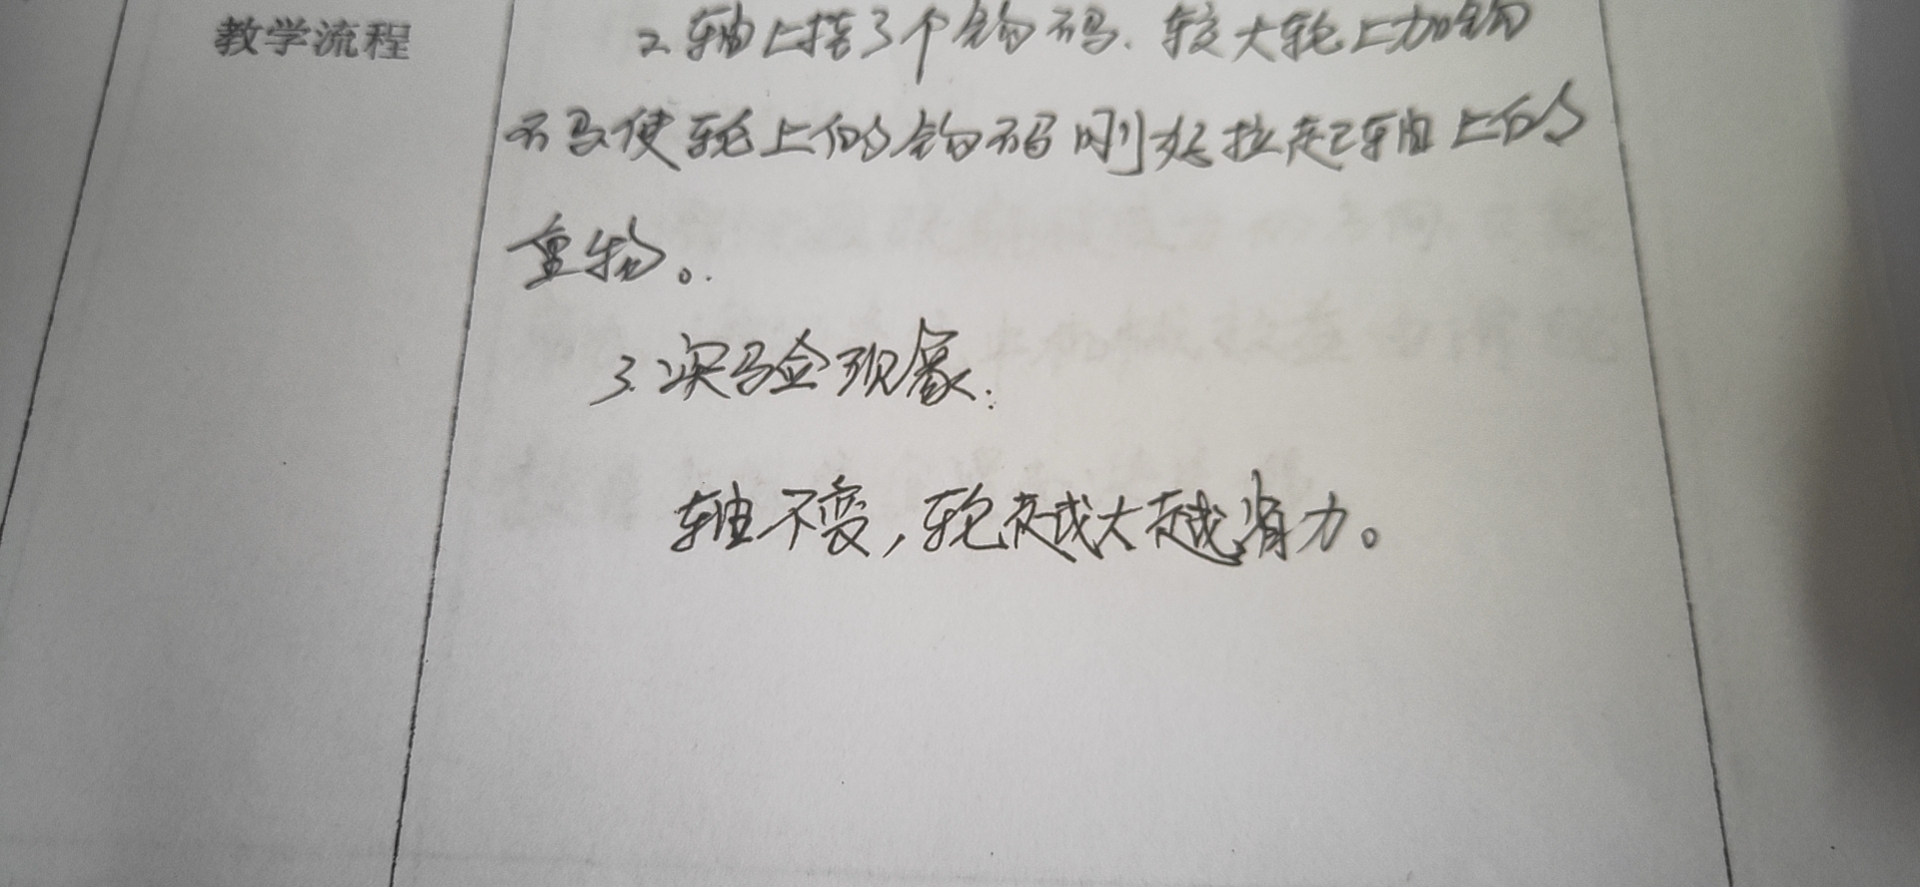 教学流程
2. 轴上搭3个钩码、较大轮上加钩
码使轮上的钩码刚好拉起轴上的
重物。
3. 实验现象:
轴不变,轮越大越省力。